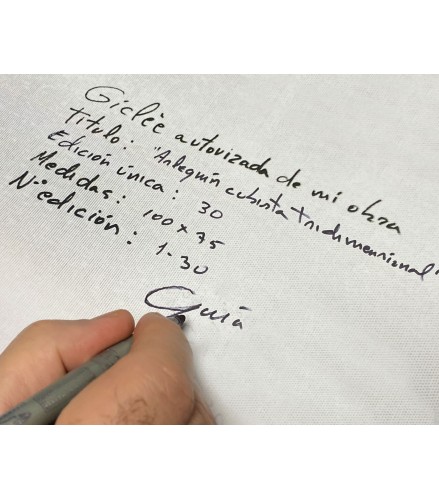 Giclèe autorizada de mi obra
Titulo: "Arlequín cubista tridimensional"
Edición única: 30
Medidas: 100 x 75
Nº edición: 1-30
Guía